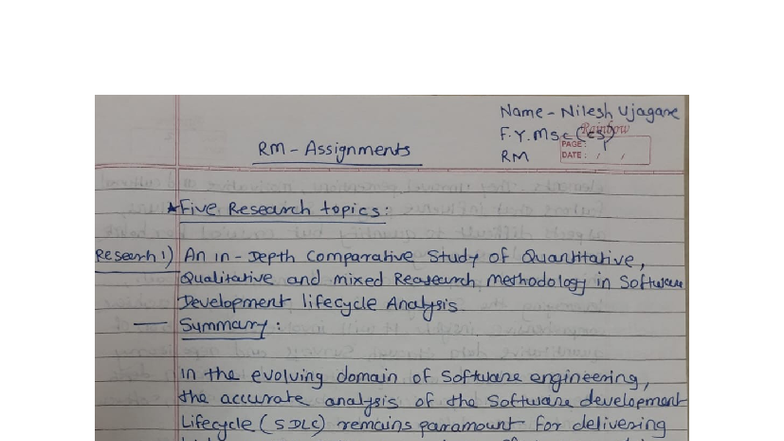 Name - Nilesh Ujagare
F.Y. Msc (CS)
Rainbow
RM
PAGE: 1
DATE: / /
RM - Assignments
★Five Research topics:
Researh 1) An in-Depth Comparative Study of Quantitative,
Qualitative and mixed Reasearch methodology in Software
Development lifecycle Analysis
— Summary:
In the evolving domain of Software engineering,
the accurate analysis of the Software development
Lifecycle (SDLC) remains paramount for delivering